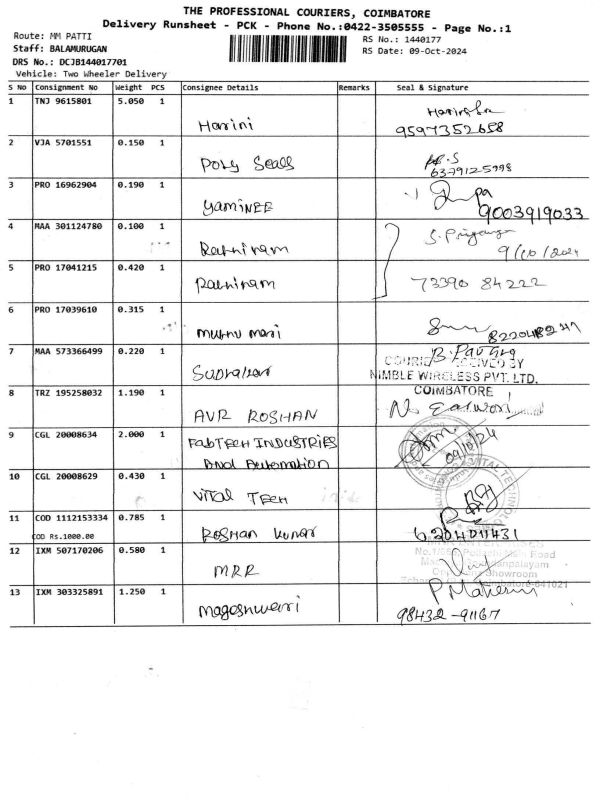 THE PROFESSIONAL COURIERS, COIMBATORE
Delivery Runsheet - PCK - Phone No.:0422-3505555 - Page No.:1
Route: MM PATTI
RS No.: 1440177
Staff: BALAMURUGAN
RS Date: 09-Oct-2024
DRS No.: DCJB144017701
Vehicle: Two Wheeler Delivery
S No Consignment No Weight PCS Consignee Details Remarks Seal & Signature
1 TNJ 9615801 5.050 1 Harini
9597352658
2 VJA 5701551 0.150 1 Poly Seals
6379125998
3 PRO 16962904 0.190 1 Yaminee
9003919033
4 MAA 301124780 0.100 1 Rathinam S. Priyanga
9/10/2024
5 PRO 17041215 0.420 1 Rathinam 73390 84222
6 PRO 17039610 0.315 1 Muthu Mari
7 MAA 573366499 0.220 1
NIMBLE WIRELESS PVT. LTD.
COIMBATORE
8 TRZ 195258032 1.190 1 AVR ROSHAN
9 CGL 20008634 2.000 1 FabTech INDUSTRIES
Automation
09/10/24
10 CGL 20008629 0.430 1 Vital Tech
11 COD 1112153334 0.785 1 Roshan Kumar
COD Rs.1000.00
12 IXM 507170206 0.580 1 MRR
Showroom
13 IXM 303325891 1.250 1 Mageshwari
98432-91167